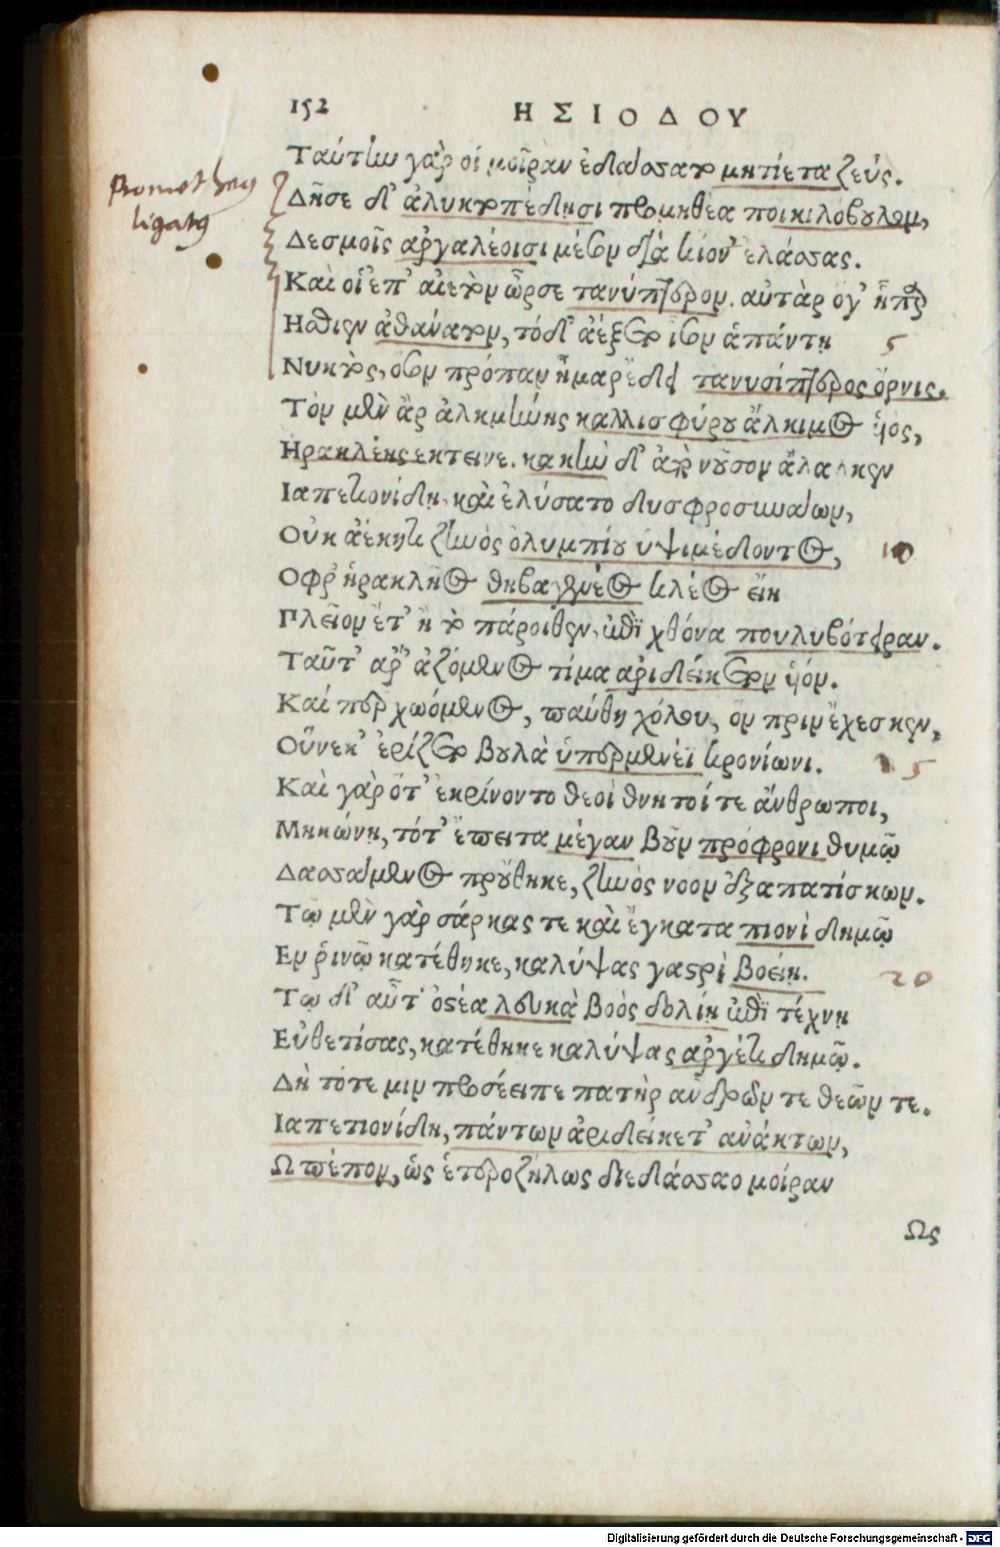 152 ΗΣΙΟΔΟΥ
Ταύτην γάρ οἱ μοῖραν ἐδάσσατο μητίετα ζεύς.
Promotheus
ligatus
Δῆσε δ' ἀλυκτοπέδησι προμηθέα ποικιλόβουλον,
Δεσμοῖς ἀργαλέοισι μέσον διὰ κίον' ἐλάσσας.
Καὶ οἱ ἐπ' αἰετὸν ὦρσε τανύπτερον. αὐτὰρ ὅγ' ἧπαρ
Ησθιεν ἀθάνατον, τό δ' ἀέξετο ἶσον ἁπάντη 5
Νυκτὸς, ὅσον πρόπαν ἦμαρ ἔδει τανυσίπτερος ὄρνις.
Τὸν μὲν ἄρ ἀλκμήνης καλλισφύρου ἄλκιμος ὑιός,
Ηρακλέης εκτεινε. κακὴν δ' ἀπὸ νοῦσον ἄλαλκεν
Ιαπετιονίδη, καὶ ἐλύσατο δυσφροσυνάων,
Οὐκ ἀέκητι ζηνὸς ὀλυμπίου ὑψιμέδοντος, 10
Οφρ' ἡρακλῆος θηβαγενέος κλέος εἴη
Πλεῖον ἔτ' ἢ τὸ πάροιθεν, ἐπὶ χθόνα πουλυβότειραν.
Ταῦτ' αρ' ἁζόμενος τίμα αριδείκετον ὑιόν.
Καί περ χωόμενος, παύθη χόλου, ὃν πριν ἔχεσκεν,
Οὕνεκ' ἐρίζετο βουλὰ ὑπερμενέϊ κρονίωνι. 15
Καὶ γὰρ ὅτ' ἐκρίνοντο θεοὶ θνητοί τε ἄνθρωποι,
Μηκώνη, τότ' ἔπειτα μέγαν βοῦν πρόφρονι θυμῷ
Δασσάμενος προὔθηκε, ζηνὸς νοον ἐξαπατίσκων.
Τῷ μὲν γὰρ σάρκας τε καὶ ἔγκατα πιονὶ δημῷ
Εν ῥινῷ κατέθηκε, καλύψας γαστρὶ βοείη. 20
Τῳ δ' αὖτ' ὀστέα λευκὰ βοὸς δολίη ἐπὶ τέχνη
Εὐθετίσας, κατέθηκε καλύψας αργέτι δημῷ.
Δὴ τότε μιν προσέειπε πατὴρ ανδρῶν τε θεῶν τε.
Ιαπετιονίδη, πάντων ἀριδείκετ' ανάκτων,
Ω πέπον, ὡς ἑτεροζήλως διεδάσσαο μοίραν
Ως
Digitalisierung gefördert durch die Deutsche Forschungsgemeinschaft - DFG